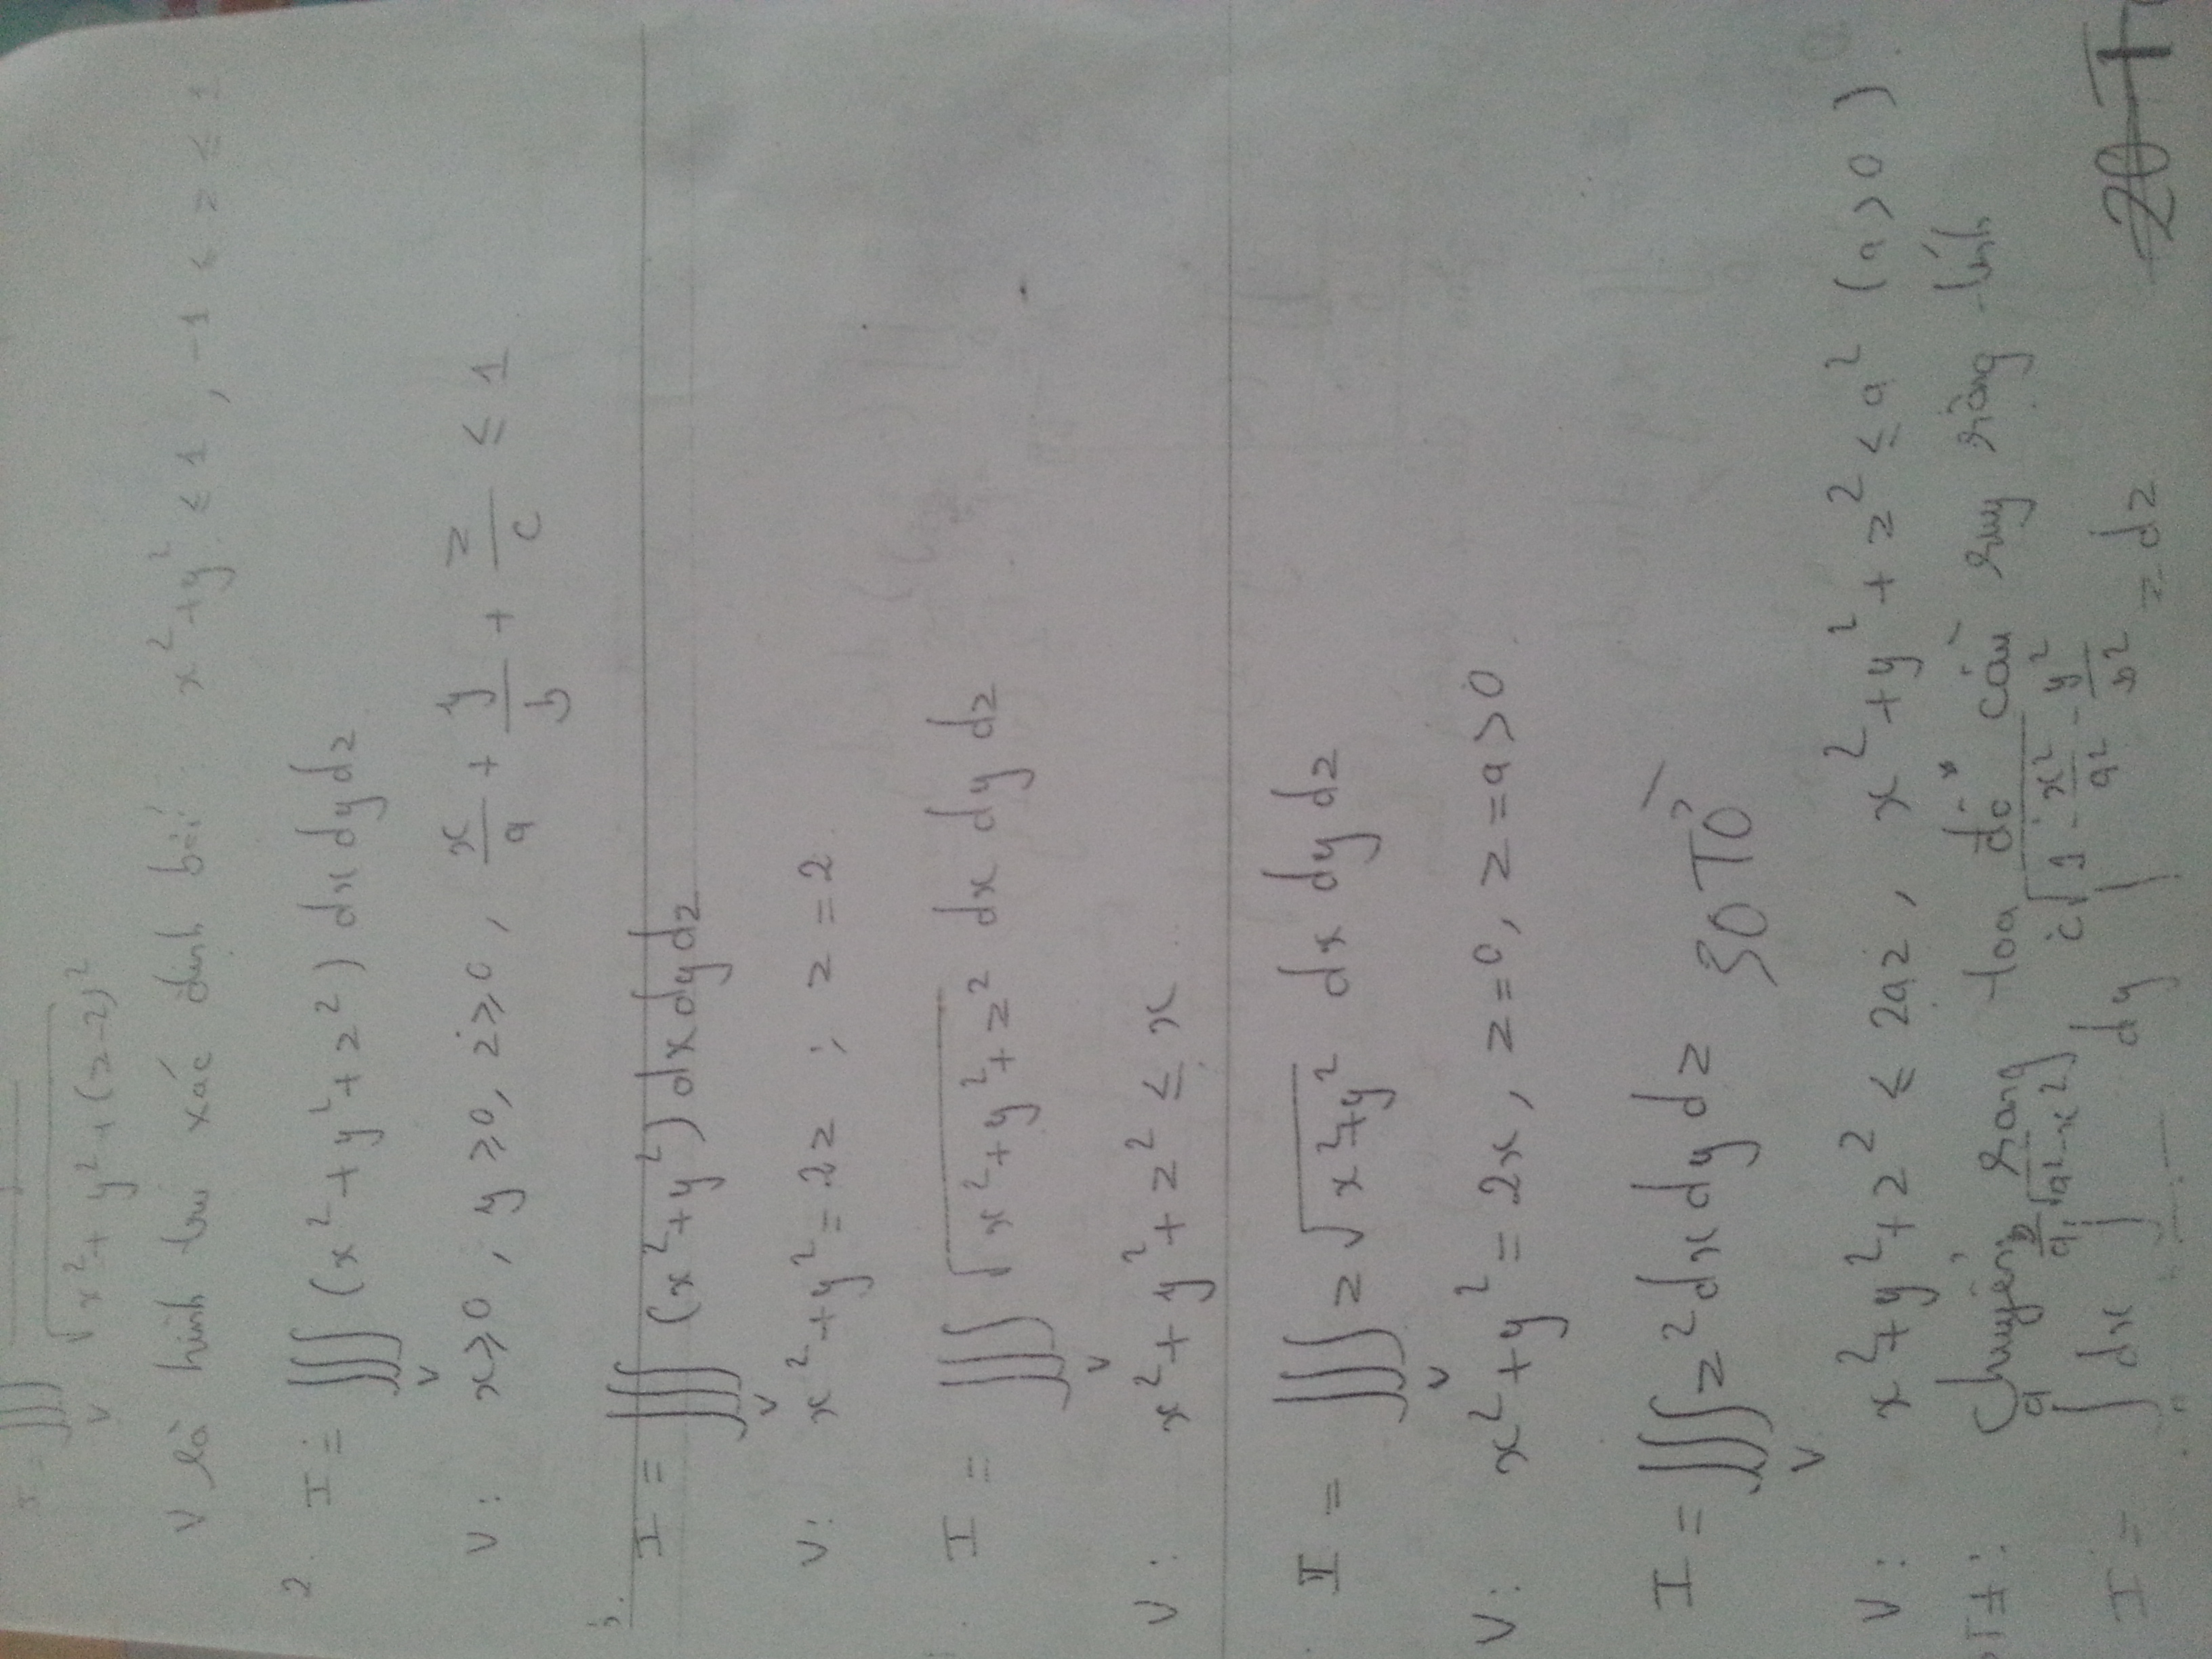 I = ∭_V 1/√(x²+y²+(z-2)²)
V là hình trụ xác định bởi x²+y² ≤ 1, -1 ≤ z ≤ 1
2. I = ∭_V (x²+y²+z²) dx dy dz
V: x≥0, y≥0, z≥0, x/a + y/b + z/c ≤ 1
3. I = ∭_V (x²+y²) dx dy dz
V: x²+y² = 2z ; z = 2
I = ∭_V √(x²+y²+z²) dx dy dz
V: x²+y²+z² ≤ x
I = ∭_V z√(x²+y²) dx dy dz
V: x²+y² = 2x, z=0, z=a>0
I = ∭_V z² dx dy dz 30 TỜ
V: x²+y²+z² ≤ 2az, x²+y²+z² ≤ a² (a>0).
Chuyển sang toạ độ cầu suy rộng tính
I = ∫₀^a dx ∫^(b/a √(a²-x²)) dy ∫^(c√(1 - x²/a² - y²/b²)) z dz 20 T